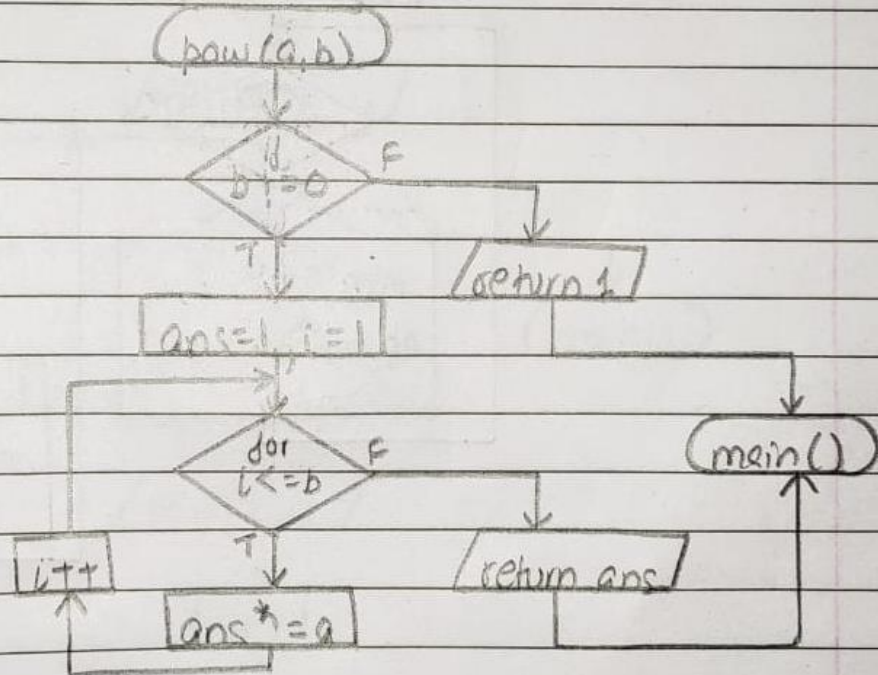 pow(a,b)
if
b!=0
F
T
return 1
ans=1, i=1
for
i<=b
F
main()
T
i++
return ans
ans*=a